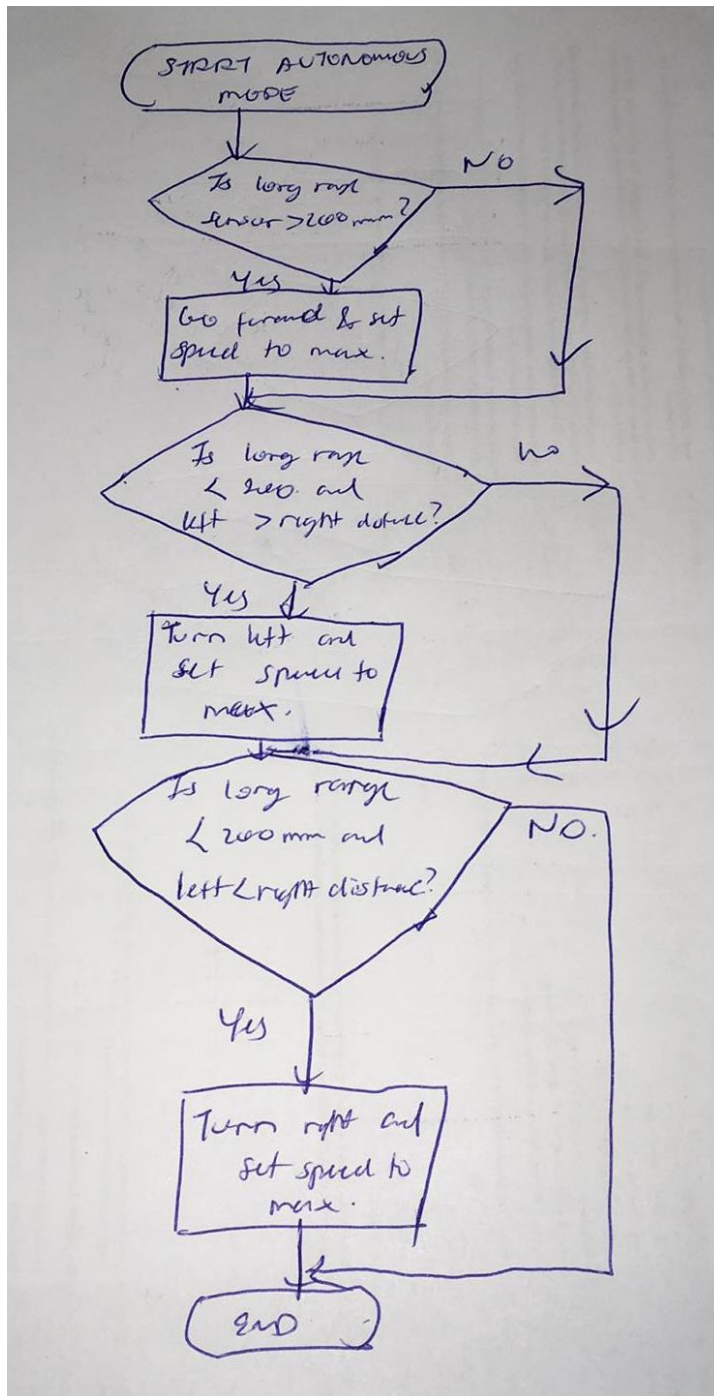 START AUTONOMOUS
MODE
NO
Is long range
sensor > 200mm?
Yes
Go forward & set
speed to max.
Is long range
no
< 200. and
left > right distance?
Yes
Turn left and
set speed to
max.
Is long range
< 200mm and
NO.
left < right distance?
Yes
Turn right and
set speed to
max.
END